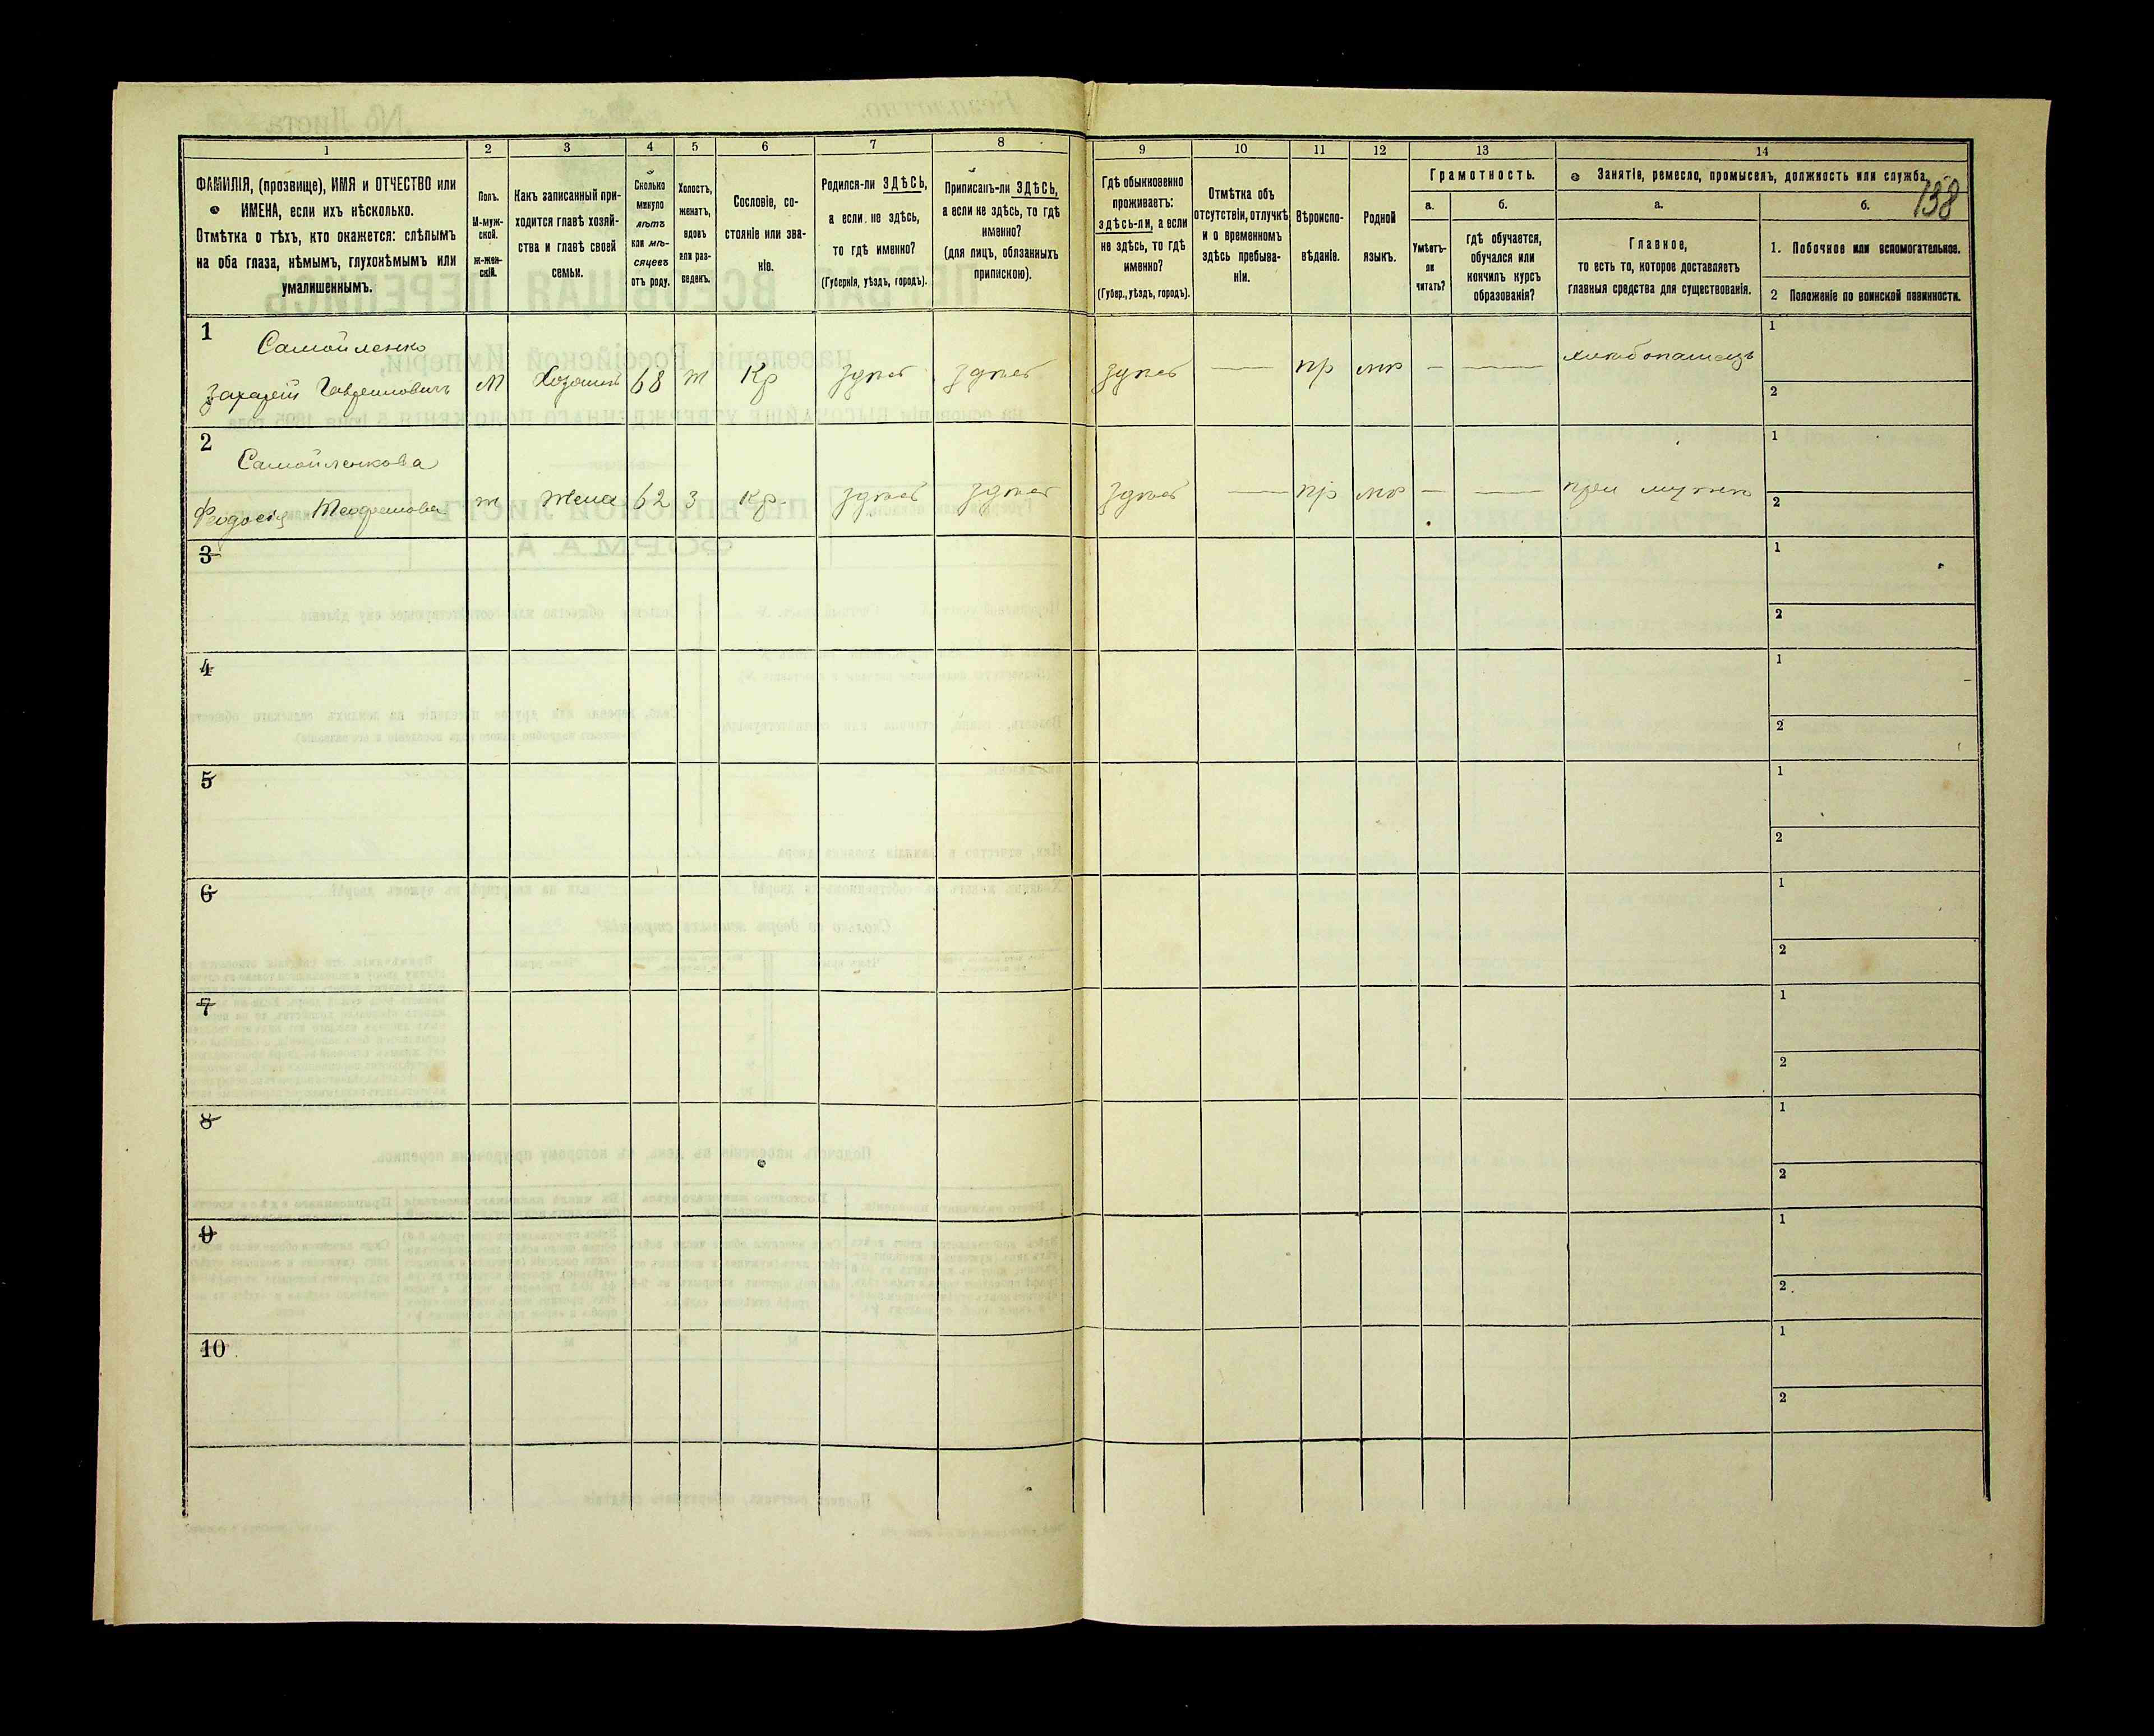 1
2
3
4
5
6
7
8
ФАМИЛІЯ, (прозвище), ИМЯ и ОТЧЕСТВО или
ИМЕНА, если ихъ нѣсколько.
Отмѣтка о тѣхъ, кто окажется: слѣпымъ
на оба глаза, нѣмымъ, глухонѣмымъ или
умалишеннымъ.
Полъ.
М-муж-
ской.
Ж-жен-
скій.
Какъ записанный при-
ходится главѣ хозяй-
ства и главѣ своей
семьи.
Сколько
минуло
лѣтъ
или мѣ-
сяцевъ
отъ роду.
Холостъ,
женатъ,
вдовъ
или раз-
веденъ.
Сословіе, со-
стояніе или зва-
ніе.
Родился-ли ЗДѢСЬ,
а если не здѣсь,
то гдѣ именно?
(Губернія, уѣздъ, городъ).
Приписанъ-ли ЗДѢСЬ,
а если не здѣсь, то гдѣ
именно?
(для лицъ, обязанныхъ
припискою).
9
10
11
12
13
14
Гдѣ обыкновенно
проживаетъ:
здѣсь-ли, а если
не здѣсь, то гдѣ
именно?
(Губер., уѣздъ, городъ).
Отмѣтка объ
отсутствіи, отлучкѣ
и о временномъ
здѣсь пребыва-
ніи.
Вѣроиспо-
вѣданіе.
Родной
языкъ.
Грамотность.
а.
Умѣетъ-
ли
читать?
б.
гдѣ обучается,
обучался или
кончилъ курсъ
образованія?
Занятіе, ремесло, промыселъ, должность или служба.
138
а.
Главное,
то есть то, которое доставляетъ
главныя средства для существованія.
б.
1. Побочное или вспомогательное.
2 Положеніе по воинской повинности.
1
Самойленко
Захарій Гавриловичъ М Хозяинъ 68 ж Кр здѣсь здѣсь здѣсь — пр мр — — хлѣбопашецъ
1
2
2
Самойленкова
Феодосія ж жена 62 з Кр. здѣсь здѣсь здѣсь — пр мр — — при мужѣ
1
2
3
1
2
4
1
2
5
1
2
6
1
2
7
1
2
8
1
2
9
1
2
10
1
2